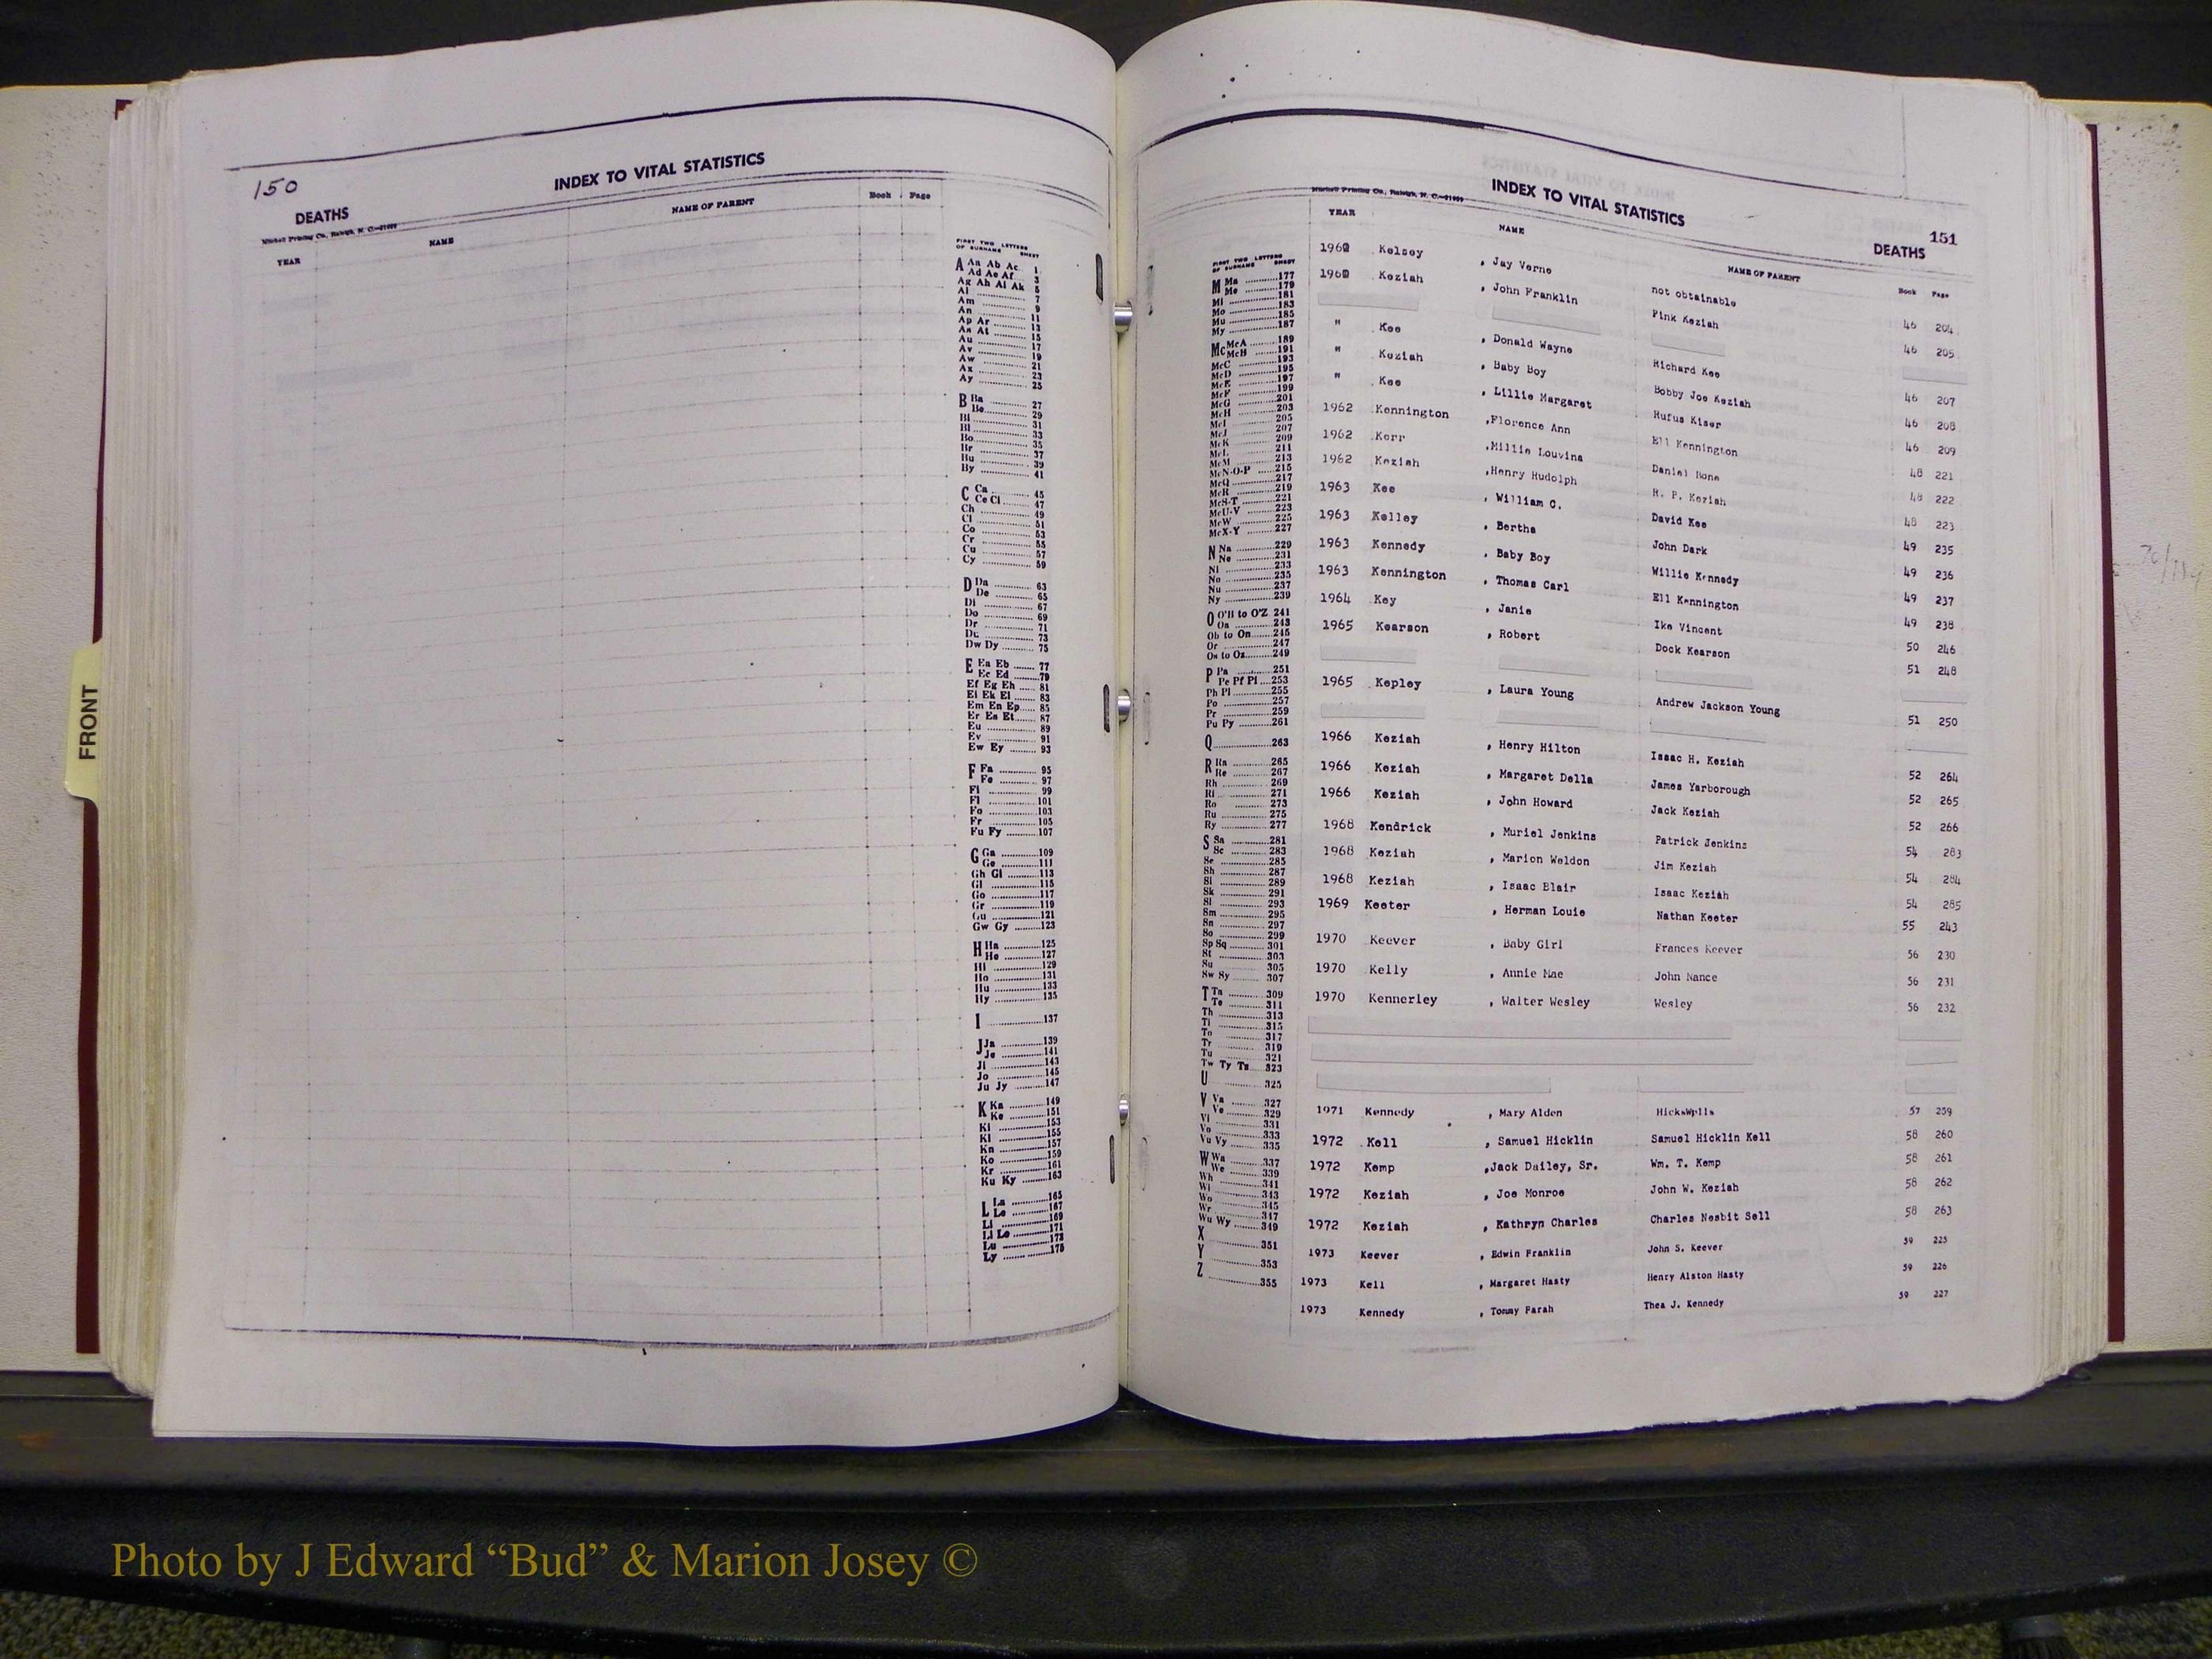 150
INDEX TO VITAL STATISTICS
DEATHS
Mitchell Printing Co., Raleigh, N. C.
YEAR NAME NAME OF PARENT Book Page
FIRST TWO LETTERS
OF SURNAME SHEET
A Aa Ab Ac 1
Ad Ae Af 3
Ag Ah Ai Ak 5
Al 7
Am 9
An 11
Ap Ar 13
As At 15
Au 17
Av 19
Aw 21
Ax 23
Ay 25
B Ba 27
Be 29
Bi 31
Bl 33
Bo 35
Br 37
Bu 39
By 41
C Ca 45
Ce Ci 47
Ch 49
Cl 51
Co 53
Cr 55
Cu 57
Cy 59
D Da 63
De 65
Di 67
Do 69
Dr 71
Du 73
Dw Dy 75
E Ea Eb 77
Ec Ed 79
Ef Eg Eh 81
Ei Ek El 83
Em En Ep 85
Er Es Et 87
Eu 89
Ev 91
Ew Ey 93
F Fa 95
Fe 97
Fi 99
Fl 101
Fo 103
Fr 105
Fu Fy 107
G Ga 109
Ge 111
Gh Gi 113
Gl 115
Go 117
Gr 119
Gu 121
Gw Gy 123
H Ha 125
He 127
Hi 129
Ho 131
Hu 133
Hy 135
I 137
J Ja 139
Je 141
Ji 143
Jo 145
Ju Jy 147
K Ka 149
Ke 151
Ki 153
Kl 155
Kn 157
Ko 159
Kr 161
Ku Ky 163
L La 165
Le 167
Li 169
Ll Lo 171
Lu 173
Ly 175
FRONT
INDEX TO VITAL STATISTICS
151
DEATHS
Mitchell Printing Co., Raleigh, N. C.
YEAR NAME NAME OF PARENT Book Page
FIRST TWO LETTERS
OF SURNAME SHEET
M Ma 177
Me 179
Mi 181
Mo 183
Mu 185
My 187
Mc McA 189
McB 191
McC 193
McD 195
McE 197
McF 199
McG 201
McH 203
McI 205
McJ 207
McK 209
McL 211
McM 213
McN-O-P 215
McQ 217
McR 219
McS-T 221
McU-V 223
McW 225
McX-Y 227
N Na 229
Ne 231
Ni 233
No 235
Nu 237
Ny 239
O O'B to O'Z 241
Oa 243
Ob to On 245
Or 247
Os to Oz 249
P Pa 251
Pe Pf Pi 253
Ph Pl 255
Po 257
Pr 259
Pu Py 261
Q 263
R Ra 265
Re 267
Rh 269
Ri 271
Ro 273
Ru 275
Ry 277
S Sa 281
Sc 283
Se 285
Sh 287
Si 289
Sk 291
Sl 293
Sm 295
Sn 297
So 299
Sp Sq 301
St 303
Su 305
Sw Sy 307
T Ta 309
Te 311
Th 313
Ti 315
To 317
Tr 319
Tu 321
Tw Ty Tz 323
U 325
V Va 327
Ve 329
Vi 331
Vo 333
Vu Vy 335
W Wa 337
We 339
Wh 341
Wi 343
Wo 345
Wr 347
Wu Wy 349
X 351
Y 353
Z 355
1962 Kelsey , Jay Verne not obtainable 46 204
1962 Keziah , John Franklin Pink Keziah 46 205
" Kee , Donald Wayne Richard Kee 46 207
" Keziah , Baby Boy Bobby Joe Keziah 46 208
" Kee , Lillie Margaret Rufus Kiser 46 209
1962 Kennington ,Florence Ann Ell Kennington 48 221
1962 Kerr ,Millie Louvina Daniel Bone 48 222
1962 Keziah ,Henry Rudolph H. P. Keziah 48 223
1963 Kee , William C. David Kee 49 235
1963 Kelley , Bertha John Dark 49 236
1963 Kennedy , Baby Boy Willie Kennedy 49 237
1963 Kennington , Thomas Carl Ell Kennington 49 238
1964 Key , Janie Ike Vincent 50 246
1965 Kearson , Robert Dock Kearson 51 248
1965 Kepley , Laura Young Andrew Jackson Young 51 250
1966 Keziah , Henry Hilton Isaac H. Keziah 52 264
1966 Keziah , Margaret Della James Yarborough 52 265
1966 Keziah , John Howard Jack Keziah 52 266
1968 Kendrick , Muriel Jenkins Patrick Jenkins 54 283
1968 Keziah , Marion Weldon Jim Keziah 54 284
1968 Keziah , Isaac Blair Isaac Keziah 54 285
1969 Keeter , Herman Louie Nathan Keeter 55 243
1970 Keever , Baby Girl Frances Keever 56 230
1970 Kelly , Annie Mae John Nance 56 231
1970 Kennerley , Walter Wesley Wesley 56 232
1971 Kennedy , Mary Alden Hicks 57 259
1972 Kell , Samuel Hicklin Samuel Hicklin Kell 58 260
1972 Kemp ,Jack Dailey, Sr. Wm. T. Kemp 58 261
1972 Keziah , Joe Monroe John W. Keziah 58 262
1972 Keziah , Kathryn Charles Charles Nesbit Sell 58 263
1973 Keever , Edwin Franklin John S. Keever 59 225
1973 Kell , Margaret Hasty Henry Alston Hasty 59 226
1973 Kennedy , Tommy Farah Thea J. Kennedy 59 227
Photo by J Edward “Bud” & Marion Josey ©